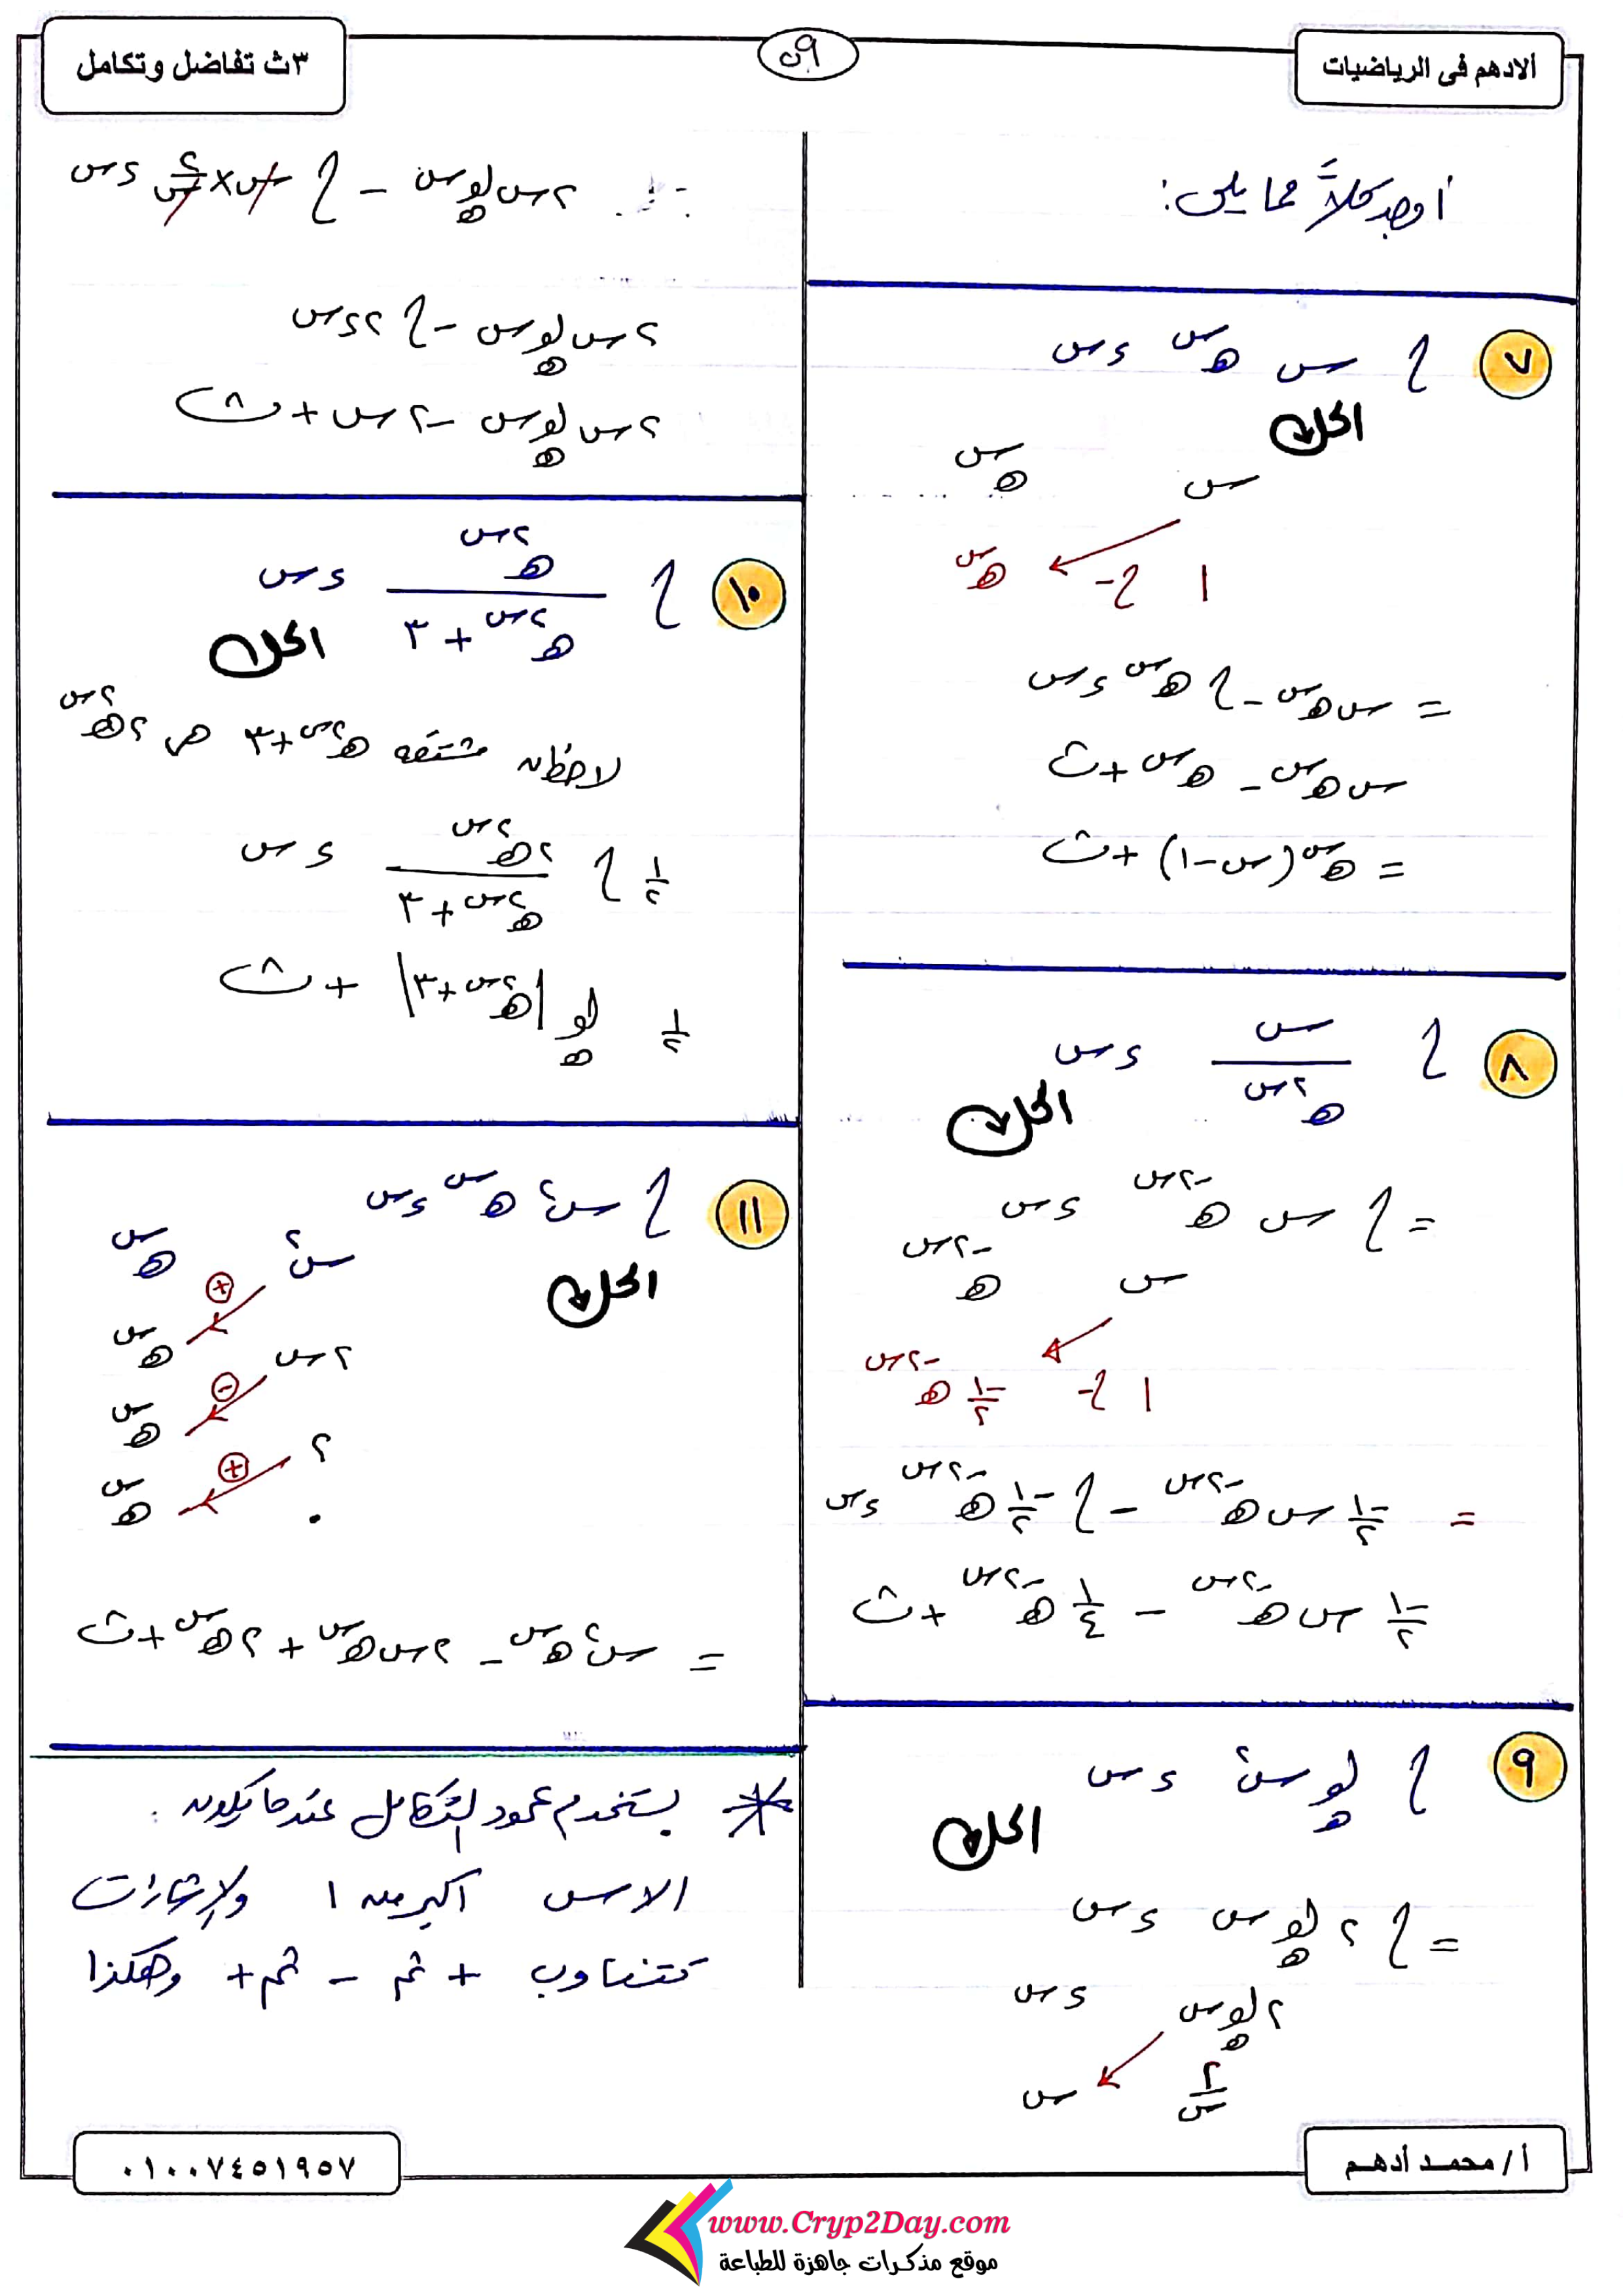 ألادهم فى الرياضيات
٥٩
٣ث تفاضل وتكامل
أوجد كلاً مما يلى:
٧
∫ س هـ^س ءس
الحل
س هـ^س
١ -∫ هـ^س
= س هـ^س - ∫ هـ^س ءس
س هـ^س - هـ^س + ث
= هـ^س (س - ١) + ث
٨
∫ س/هـ^٢س ءس
الحل
= ∫ س هـ^-٢س ءس
س هـ^-٢س
١ -∫ -١/٢ هـ^-٢س
= -١/٢ س هـ^-٢س - ∫ -١/٢ هـ^-٢س ءس
-١/٢ س هـ^-٢س - ١/٤ هـ^-٢س + ث
٩
∫ لو_هـ س^٢ ءس
الحل
= ∫ ٢ لو_هـ س ءس
٢ لو_هـ س ءس
٢/س س
∴ ٢س لو_هـ س - ∫ س × ٢/س ءس
٢س لو_هـ س - ∫ ٢ءس
٢س لو_هـ س - ٢س + ث
١٠
∫ هـ^٢س/(هـ^٢س + ٣) ءس
الحل
لاحظ أن مشتقة هـ^٢س + ٣ هى ٢هـ^٢س
١/٢ ∫ ٢هـ^٢س/(هـ^٢س + ٣) ءس
١/٢ لو_هـ |هـ^٢س + ٣| + ث
١١
∫ س^٢ هـ^س ءس
الحل
س^٢ هـ^س
+
٢س هـ^س
-
٢ هـ^س
+
٠ هـ^س
= س^٢ هـ^س - ٢س هـ^س + ٢هـ^س + ث
* يستخدم عمود التكامل عندما يكون :
الاس أكبر من ١ والإشارات
تتناوب + ثم - ثم + وهكذا
أ / محمد أدهم
٠١٠٠٧٤٥١٩٥٧
www.Cryp2Day.com
موقع مذكرات جاهزة للطباعة